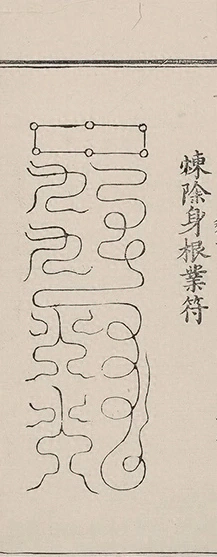 煉除身根業符